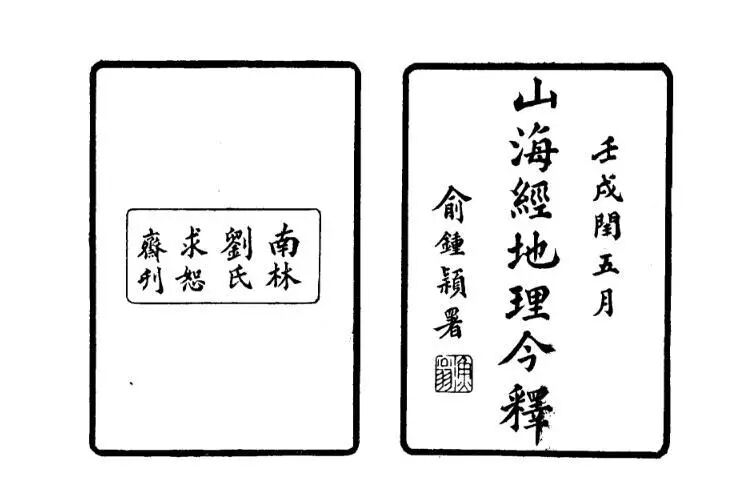 壬戌閏五月
山海經地理今釋
俞鍾穎署
南林
劉氏
求恕
齋刊